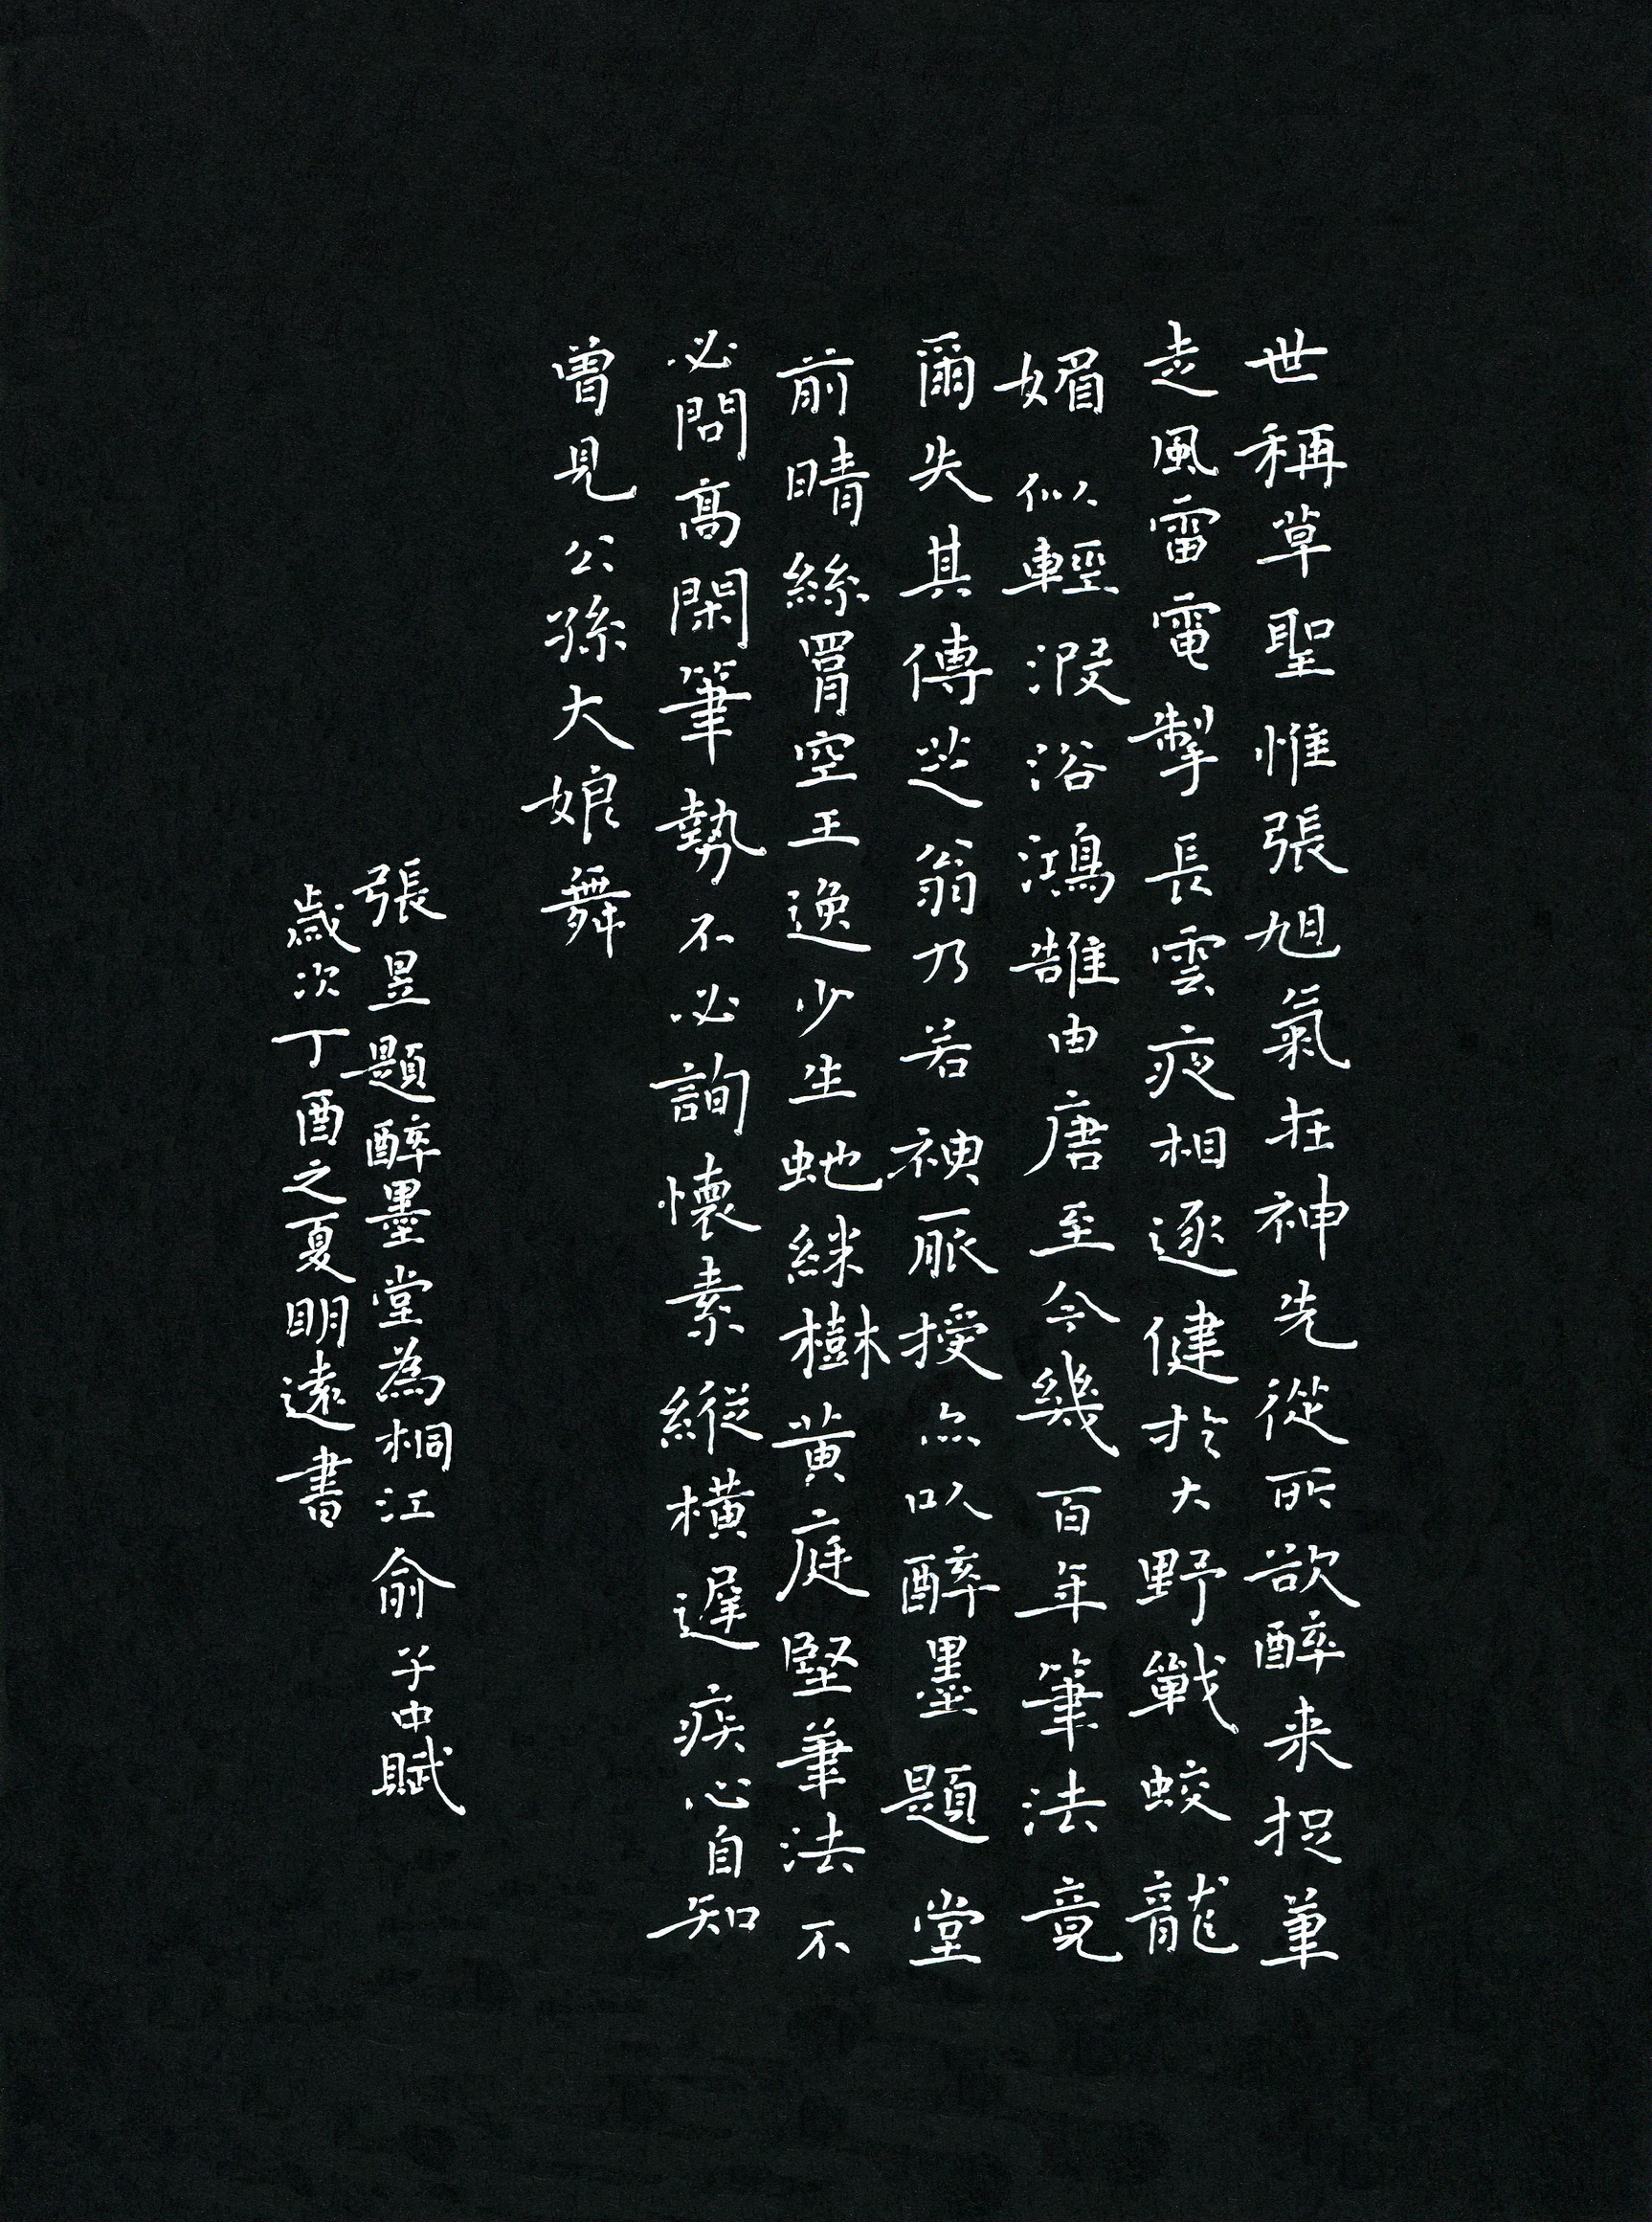 世稱草聖惟張旭氣在神先從所欲醉来捉筆
走風雷電掣長雲疾相逐健於大野戰蛟龍
媚似輕浴鴻鵠由唐至今幾百年筆法竟
爾失其傳芝翁乃若神脈授亦以醉墨題堂
前晴絲罥空王逸少生蛇絲樹黄庭堅筆法不
必問高閑筆勢不必詢懷素縱横遲疾心自知
曽見公孫大娘舞
張昱題醉墨堂為桐江俞子中賦
歲次丁酉之夏明遠書